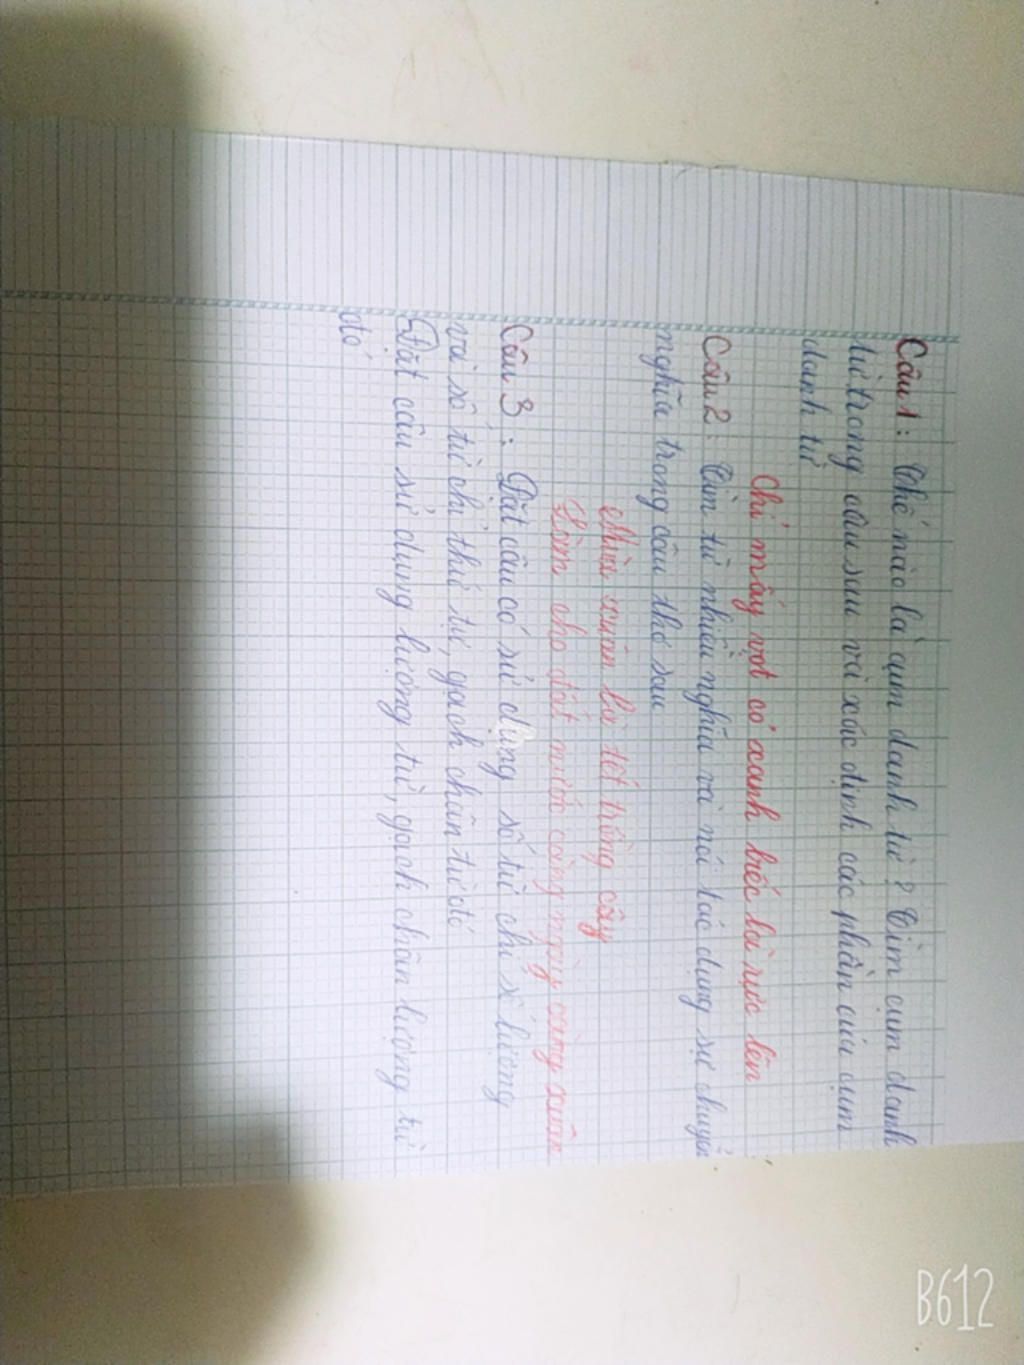 Câu 1: Thế nào là cụm danh từ? Tìm cụm danh
từ trong câu sau và xác định các phần của cụm
danh từ
Chú mày vọt cỏ xanh biếc lại rực lên
Câu 2: Tìm từ nhiều nghĩa và nói tác dụng sự chuyển
nghĩa trong câu thơ sau
Mùa xuân là tết trồng cây
Làm cho đất nước càng ngày càng xuân
Câu 3: Đặt câu có sử dụng số từ chỉ số lượng
và số từ chỉ thứ tự, gạch chân từ đó
Đặt câu sử dụng lượng từ, gạch chân lượng từ
đó
B612